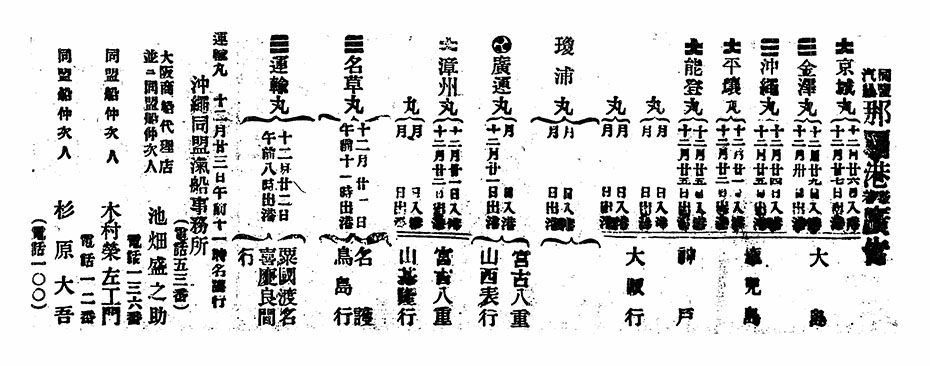 同盟
汽船
那覇港
廣告
京城丸
十二月廿六日入港
十二月廿七日出港
金澤丸
十二月廿九日入港
十二月卅日出港
沖繩丸
十二月廿四日入港
十二月廿五日出港
平壤丸
十二月廿一日入港
十二月廿二日出港
能登丸
十二月廿三日入港
十二月廿五日出港
丸
月 日入港
月 日出港
丸
月 日入港
月 日出港
大島
鹿兒島
神戶
大阪行
瓊浦丸
月 日入港
月 日出港
廣運丸
月 日入港
十二月廿一日出港
宮古八重
山西表行
漳州丸
十二月廿一日入港
十二月廿二日出港
丸
月 日入港
月 日出港
宮古八重
山基隆行
名草丸
十二月廿一日
午前十一時出港
名護
島行
運輸丸
十二月廿二日
午前八時出港
粟國渡名
喜慶良間
行
運輸丸 十二月廿三日午前十一時名護行
沖繩同盟滊船事務所
(電話五三番)
大阪商船代理店
並ニ同盟船仲次人
池畑盛之助
電話一三六番
同盟船仲次人
木村榮左工門
電話一一二番
同盟船仲次人
杉原大吾
(電話一〇〇)